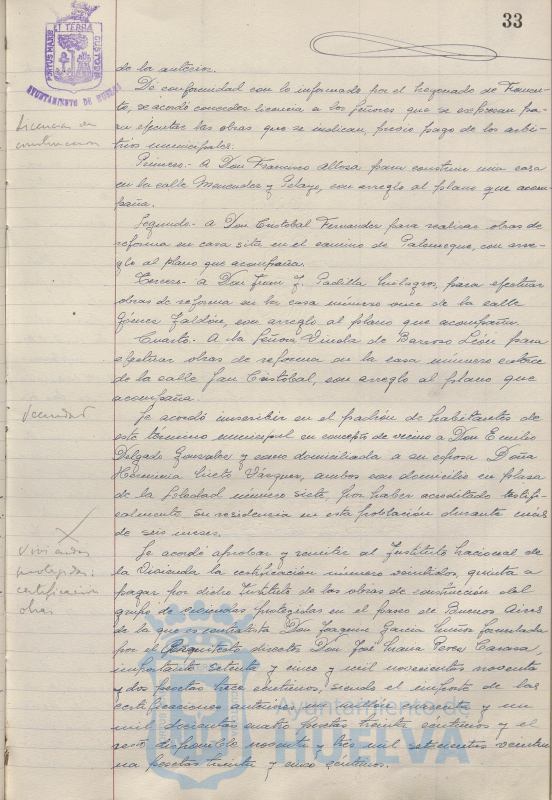 33
PORTUS MARIS ET TERRAE CUSTODIA
AYUNTAMIENTO DE HUELVA
de la anterior.
De conformidad con lo informado por el Negociado de Fomen-
to, se acordó conceder licencia a los Señores que se expresan pa-
Licencias de
ra ejecutar las obras que se indican, previo pago de los arbi-
construcción
trios municipales:
Primero.- A Don Francisco para construir una casa
en la calle Menendez y Pelayo, con arreglo al plano que acom-
paña.
Segundo.- A Don Cristobal Fernandez para realizar obras de
reforma en casa sita en el camino de Palomeque, con arre-
glo al plano que acompaña.
Tercero.- a Don Juan J. Padilla para efectuar
obras de reforma en la casa número once de la calle
Gómez Jaldón, con arreglo al plano que acompaña.
Cuarto.- A la Señora Viuda de Barroso León para
efectuar obras de reforma en la casa número catorce
de la calle San Cristobal, con arreglo al plano que
acompaña.
Vecindad
Se acordó inscribir en el padrón de habitantes de
este término municipal en concepto de vecino a Don Emilio
Delgado Gonzalez y como domiciliada a su esposa Doña
Herminia Vázquez, ambos con domicilio en plaza
de la Soledad número siete, por haber acreditado testifi-
calmente su residencia en esta población durante más
de seis meses.
Viviendas
protegidas:
certificación
obras
Se acordó aprobar y remitir al Instituto Nacional de
la Vivienda la certificación número veintidos, quinta a
pagar por dicho Instituto de las obras de construcción del
grupo de viviendas protegidas en el paseo de Buenos Aires
de la que es contratista Don Joaquin Garcia formulada
por el Arquitecto director Don José Maria Perez Carasa,
importante setenta y cinco mil novecientas noventa
y dos pesetas trece céntimos, siendo el importe de las
certificaciones anteriores un millon sesenta y un
mil doscientas cuatro pesetas treinta céntimos y el
resto disponible noventa y tres mil setecientas veintiu-
na pesetas treinta y cinco céntimos.
Ayuntamiento de
HUELVA